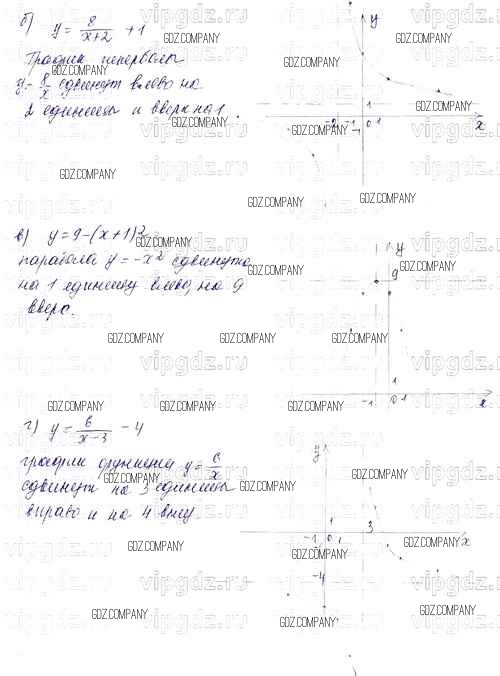 б) y = 8/(x+2) + 1
График гиперболы
y = 8/x сдвинут влево на
2 единицы и вверх на 1
y
1
-2 -1 0 1
x
в) y = 9-(x+1)²
парабола y = -x² сдвинута
на 1 единицу влево, на 9
вверх.
y
9
1
-1 0 1
x
г) y = 6/(x-3) - 4
график функции y = 6/x
сдвинут на 3 единицы
вправо и на 4 вниз
y
1
-1 0 1 3 x
-4
GDZ.COMPANY
vipgdz.ru